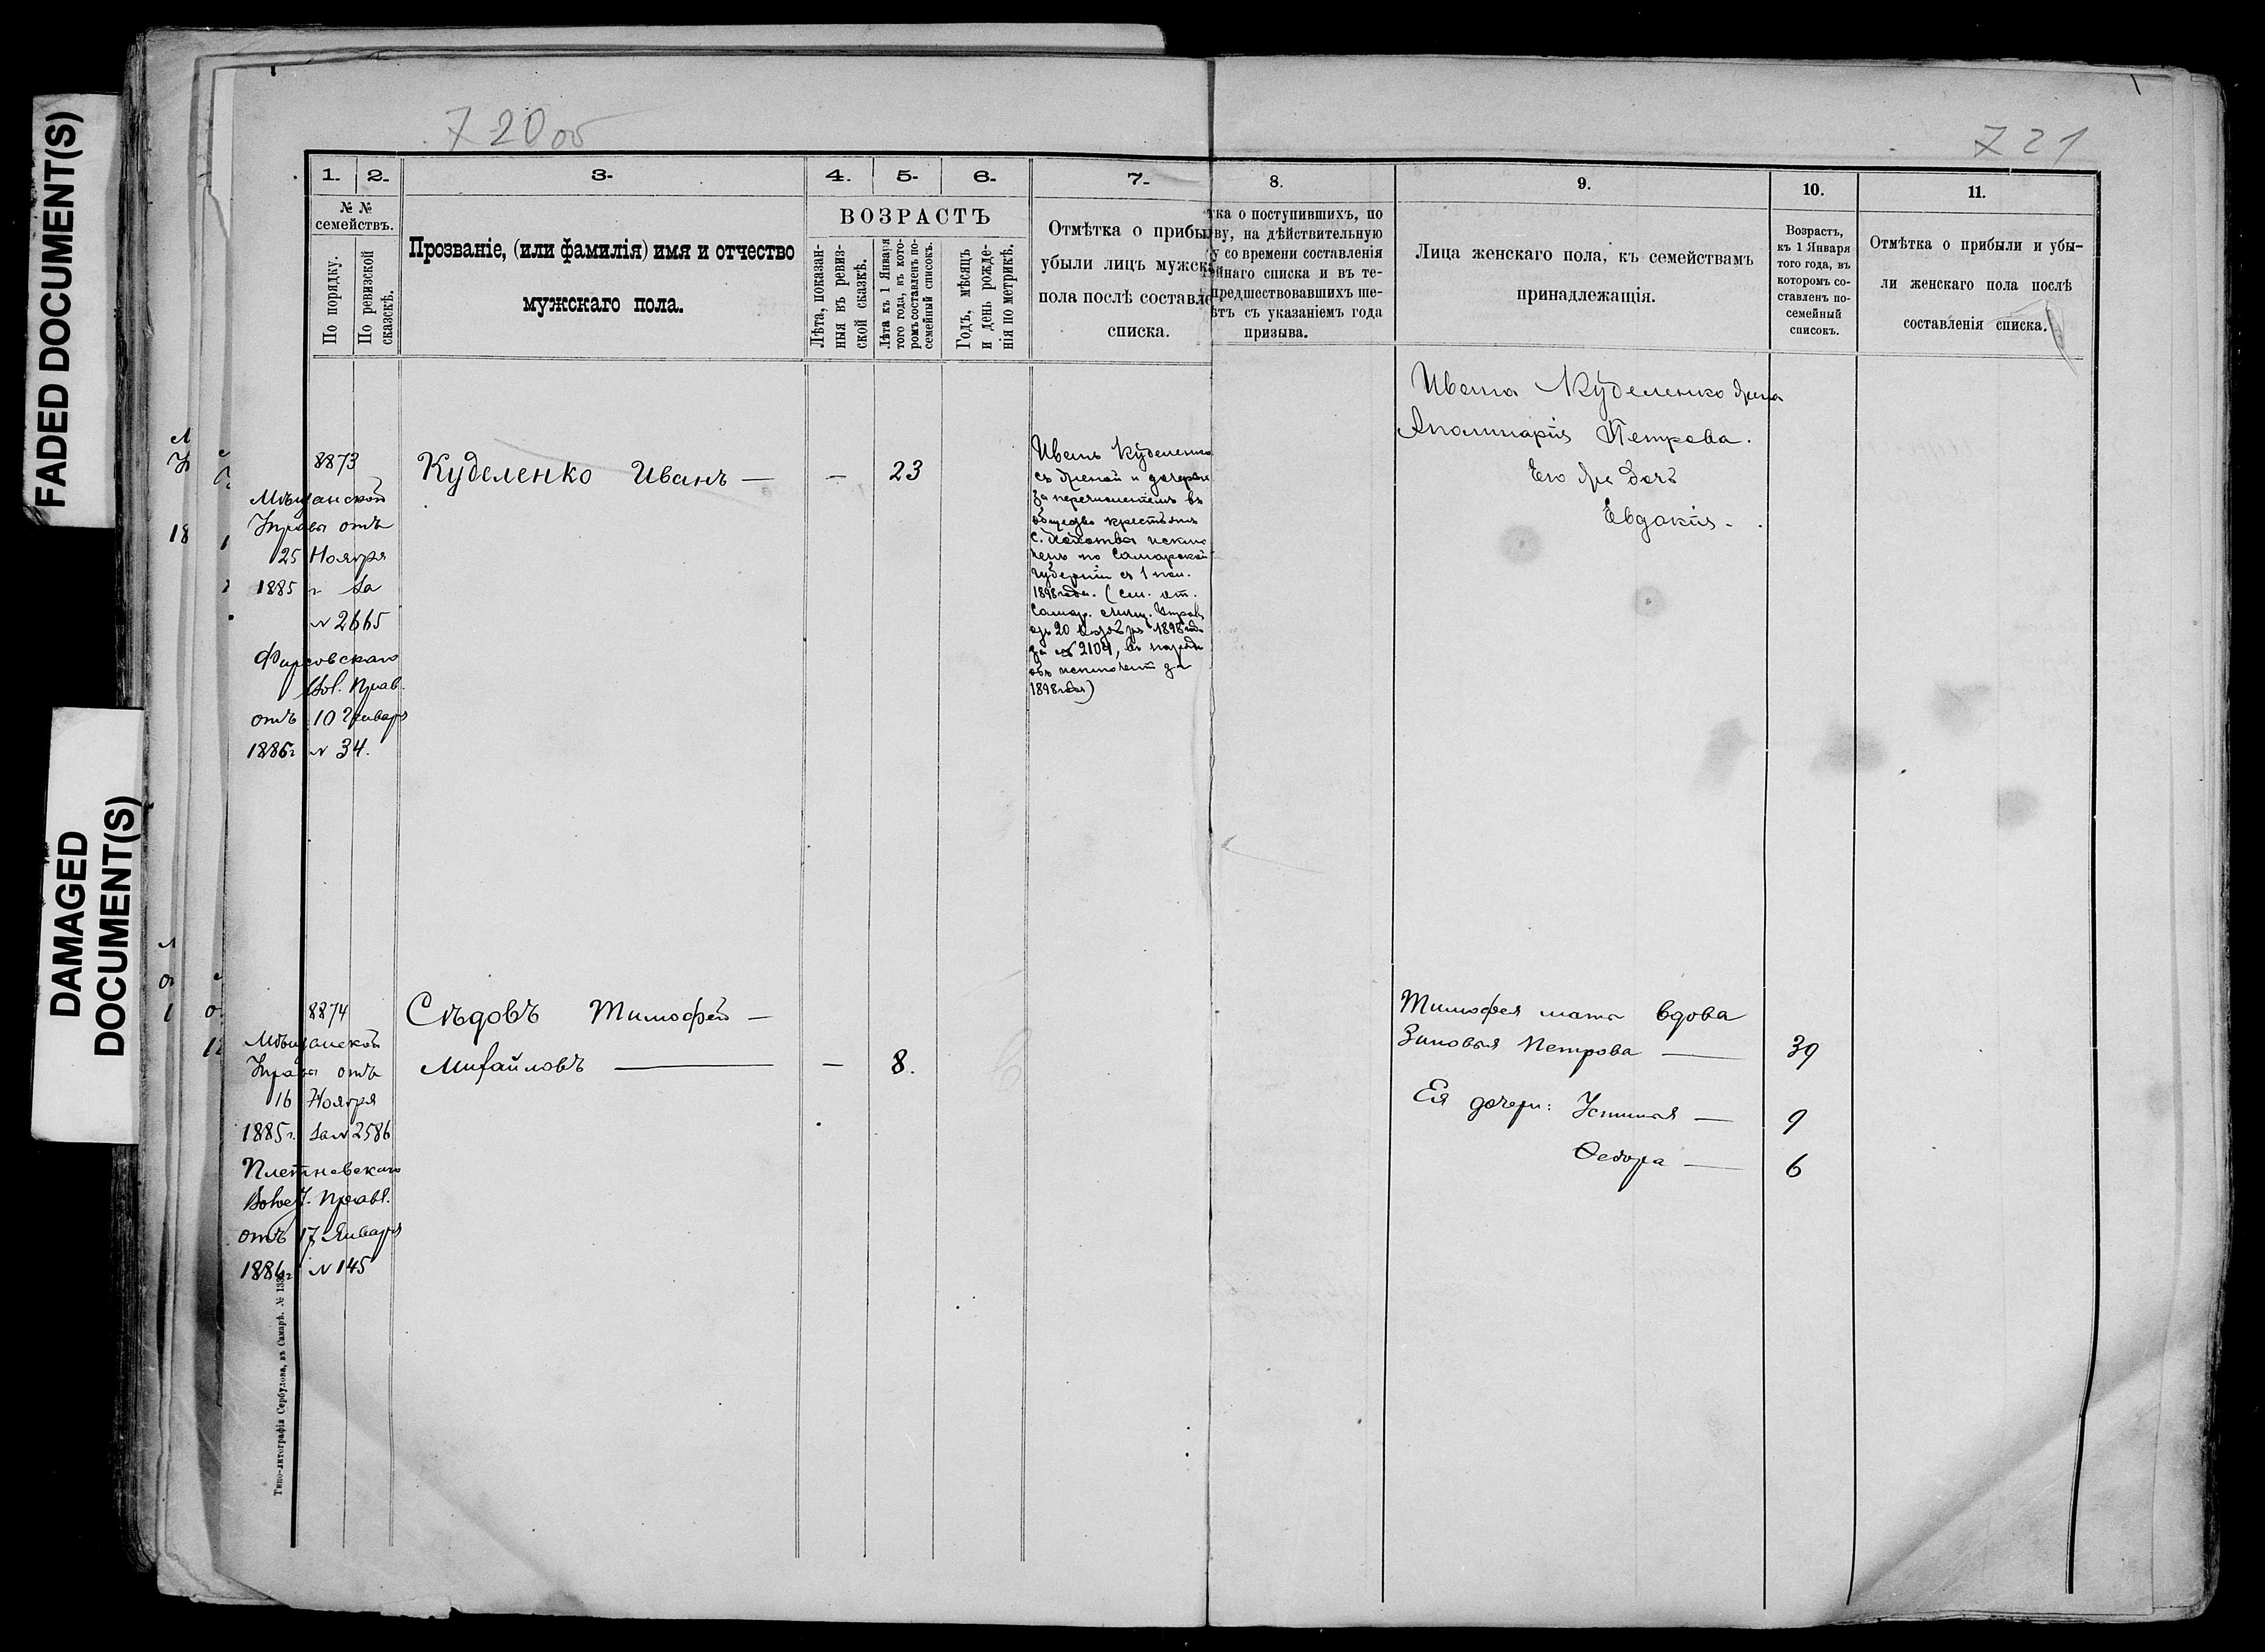 FADED DOCUMENT(S)
DAMAGED
DOCUMENT(S)
720 об
721
1. 2. 3. 4. 5. 6. 7.
№ №
семействъ.
По порядку.
По ревизской
сказкѣ.
Прозваніе, (или фамилія) имя и отчество
мужскаго пола.
ВОЗРАСТЪ
Лѣта, показан-
ныя въ ревиз-
ской сказкѣ.
Лѣта къ 1 Января
того года, въ кото-
ромъ составленъ по-
семейный списокъ.
Годъ, мѣсяцъ
и день рожде-
нія по метрикѣ.
Отмѣтка о прибы
убыли лицъ мужск
пола послѣ составле
списка.
8873
Мѣщанской
Управы отъ
25 Ноября
1885 г. за
№ 2665
Фирсовскаго
Вол. Прав.
отъ 10 Января
1886г № 34.
Куделенко Иванъ —
— 23
Иванъ Куделенко
съ женой и дочерью
за перечисленіемъ въ
общество крестьянъ
исклю
ченъ по Самарской
губерніи съ 1 пол.
1898 года. (см. от.
Самар. мѣщ. Управы
отъ 20 1898 года
за № 2104, въ
объ исключеніи за
1898 годъ)
8874
Мѣщанской
Управы отъ
16 Ноября
1885г. за № 2586
Плетневскаго
Волост. Правл.
отъ 17 Января
1886г № 145
Сѣдовъ Тимофей —
Михайловъ — — 8.
Типо-литографія Сербулова, въ Самарѣ.
8. 9. 10. 11.
тка о поступившихъ, по
ву, на дѣйствительную
у со времени составленія
ейнаго списка и въ те-
предшествовавшихъ ше-
ѣтъ съ указаніемъ года
призыва.
Лица женскаго пола, къ семействамъ
принадлежащія.
Возрастъ,
къ 1 Января
того года, въ
которомъ со-
ставленъ по-
семейный
списокъ.
Отмѣтка о прибыли и убы-
ли женскаго пола послѣ
составленія списка.
Ивана Куделенко жена
Аполинарія Петрова.
Его же дочь
Евдокія.
Тимофея мать вдова
Зиновья Петрова — 39
Ея дочери: Устинья — 9
Федора — 6